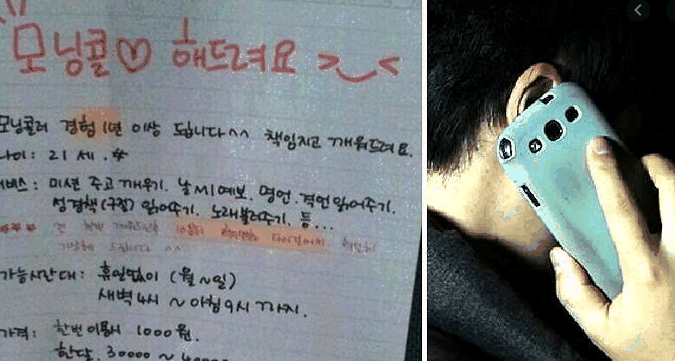 모닝콜♡ 해드려요 >‿<
모닝콜러 경험 1년 이상 됩니다^^ 책임지고 깨워드려요.
나이: 21세.
서비스: 미션 주고 깨우기. 날씨예보. 명언. 격언 읽어주기.
성경책(구절) 읽어주기. 노래불러주기. 등...
^^
가능시간대: 휴일없이 (월~일)
새벽 4시 ~ 아침 9시 까지.
가격: 한번 이용시 1000원.
한달. 30000 ~